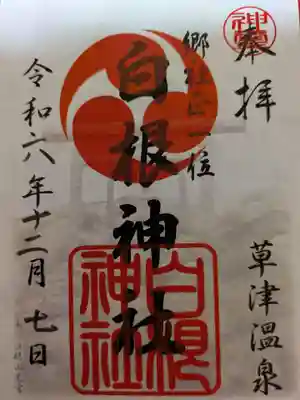 奉拝
草津温泉
郷社正一位
白根神社
白根神社
令和六年十二月七日